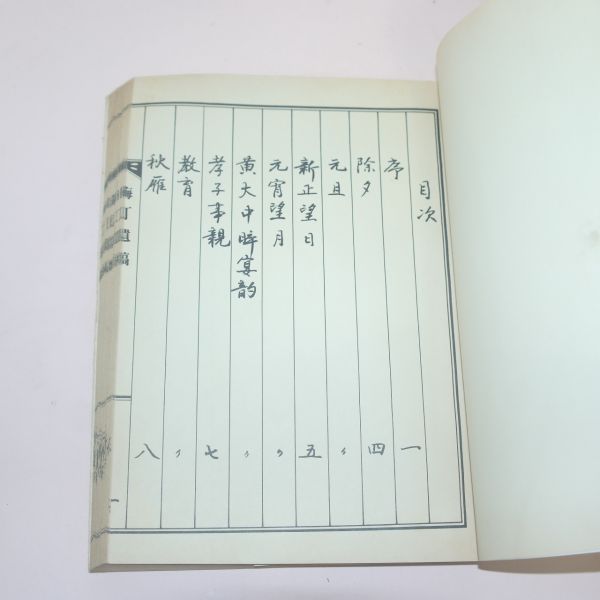 目次
序 一
除夕 四
元旦 〃
新正望日 五
元宵望月 〃
黄大中晬宴韵 〃
孝子事親 七
教育 〃
秋雁 八
梅丁遺稿
一